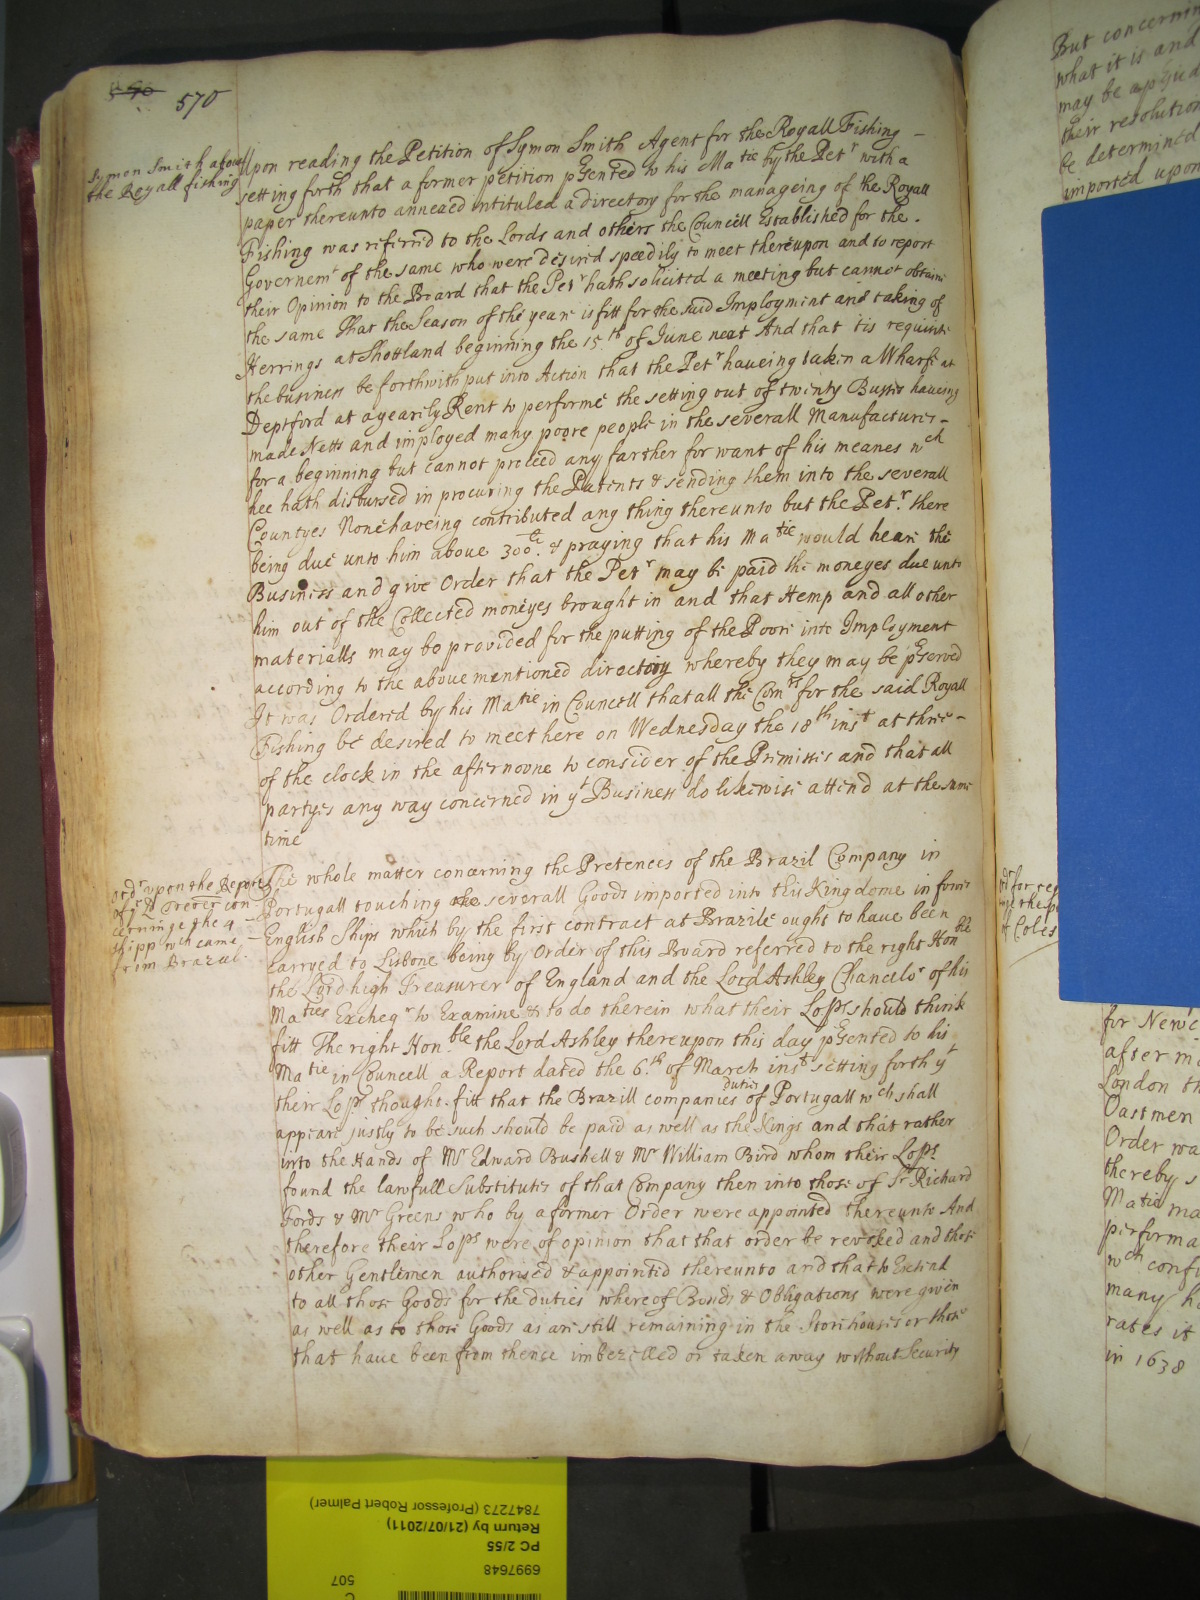 570
Symon Smith about
the Royall fishing
Upon reading the Petition of Symon Smith Agent for the Royall Fishing
setting forth that a former petition presented to his Matie by the Petr with a
paper thereunto annexed intituled a directory for the manageing of the Royall
Fishing was referred to the Lords and others the Councell Established for the
Governemt of the same who were desired speedily to meet thereupon and to report
their Opinion to the Board that the Petr hath solicited a meeting but cannot obtaine
the same That the Season of the yeare is fitt for the said Imployment and taking of
Herrings at Shottland beginning the 15th of June next And that tis requisite
the business be forthwith put into Action that the Petr haveing taken a Wharfe at
Deptford at a yearely Rent to performe the setting out of twenty Busses haveing
made Netts and imployed many poore people in the severall Manufactures
for a beginning but cannot proceed any farther for want of his meanes wch
hee hath disbursed in procuring the Patents & sending them into the severall
Countyes None haveing contributed any thing thereunto but the Petr. there
being due unto him above 300li. & praying that his Matie would heare the
Business and give Order that the Petr may be paid the moneyes due unto
him out of the Collected moneyes brought in and that Hemp and all other
materialls may be provided for the putting of the Poore into Imployment
according to the above mentioned directory whereby they may be pserved
It was Ordered by his Matie in Councell that all the Comrs for the said Royall
Fishing be desired to meet here on Wednesday the 18th inst at three
of the clock in the afternoone to consider of the Primisses and that all
partyes any way concerned in yt Business do likewise attend at the same
time
Ordr upon the Report
of ye Ld Treārer con
cerninge the 4
shipp wch came
from Brazal
The whole matter concerning the Pretences of the Brazil Company in
Portugall touching the severall Goods imported into this Kingdome in fower
English Ships which by the first contract at Brazile ought to have been
carryed to Lisbone being by Order of this Board referred to the right Honble
the Lord high Treasurer of England and the Lord Ashley Chancelor of his
Maties Excheqr to Examine & to do therein what their Lopps should think
fitt The right Honble the Lord Ashley thereupon this day psented to his
Matie in Councell a Report dated the 6th of March inst setting forth yt
their Lopps thought fitt that the Brazill companies duties of Portugall wch shall
appeare justly to be such should be paid as well as the Kings and that rather
into the Hands of Mr Edward Bushell & Mr William Bird whom their Lopps
found the lawfull Substitutes of that Company then into those of Sr Richard
Fords & Mr Greens who by a former Order were appointed thereunto And
therefore their Lopps were of opinion that that order be revoked and those
other Gentlemen authorised & appointed thereunto and that to Extend
to all those Goods for the duties whereof Bonds & Obligations were given
as well as to those Goods as are still remaining in the Storehouses or those
that have been from thence imbezelled or taken away without Security
But concerning
what it is and
may be
their resolution
be determined
imported upon
of Coles
for Newc
after
London th
Oastmen
Order wa
thereby s
Matie ma
performa
wch confi
many h
rates it
in 1638
7847273 (Professor Robert Palmer)
Return by (21/07/2011)
PC 2/55
6997648
507